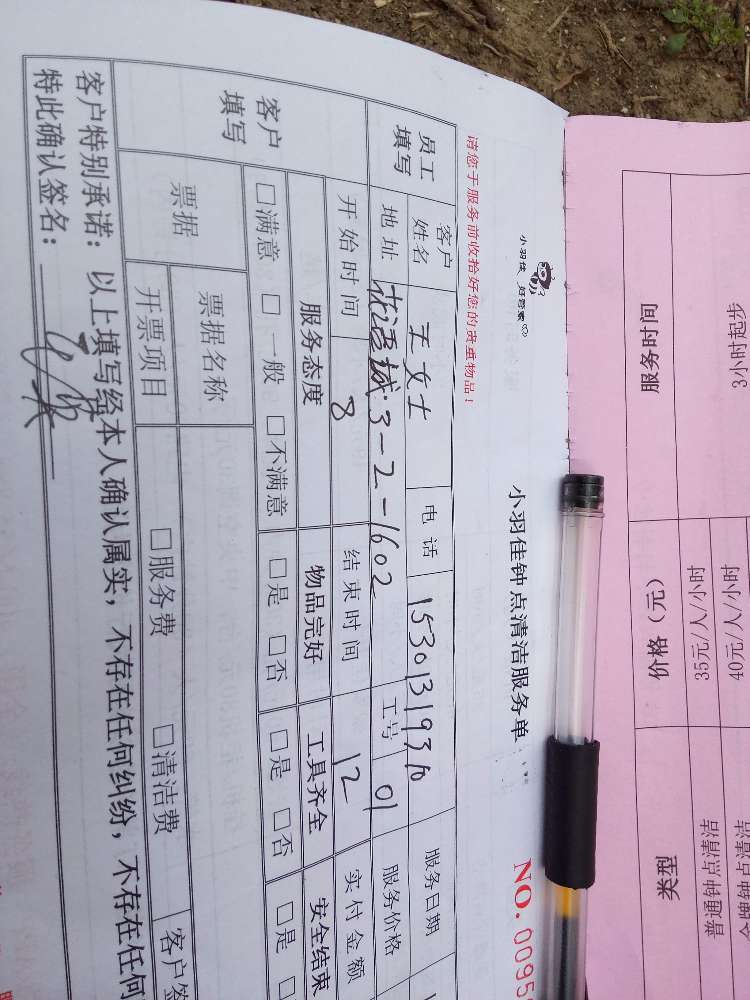 小羽佳 好管家
小羽佳钟点清洁服务单
NO. 0095
请您于服务前收拾好您的贵重物品！
员工填写 客户姓名 王女士 电话 15301319310 服务日期
地址 花语城·3-2-1602 工号 01 服务价格
客户填写 开始时间 8 结束时间 12 实付金额
服务态度 物品完好 工具齐全 安全结束
□满意 □一般 □不满意 □是 □否 □是 □否 □是
票据 票据名称
开票项目 □服务费 □清洁费
客户特别承诺：以上填写经本人确认属实，不存在任何纠纷，不存在任何
特此确认签名：
服务时间 价格（元） 类型
3小时起步 35元/人/小时 普通钟点清洁
40元/人/小时 金牌钟点清洁